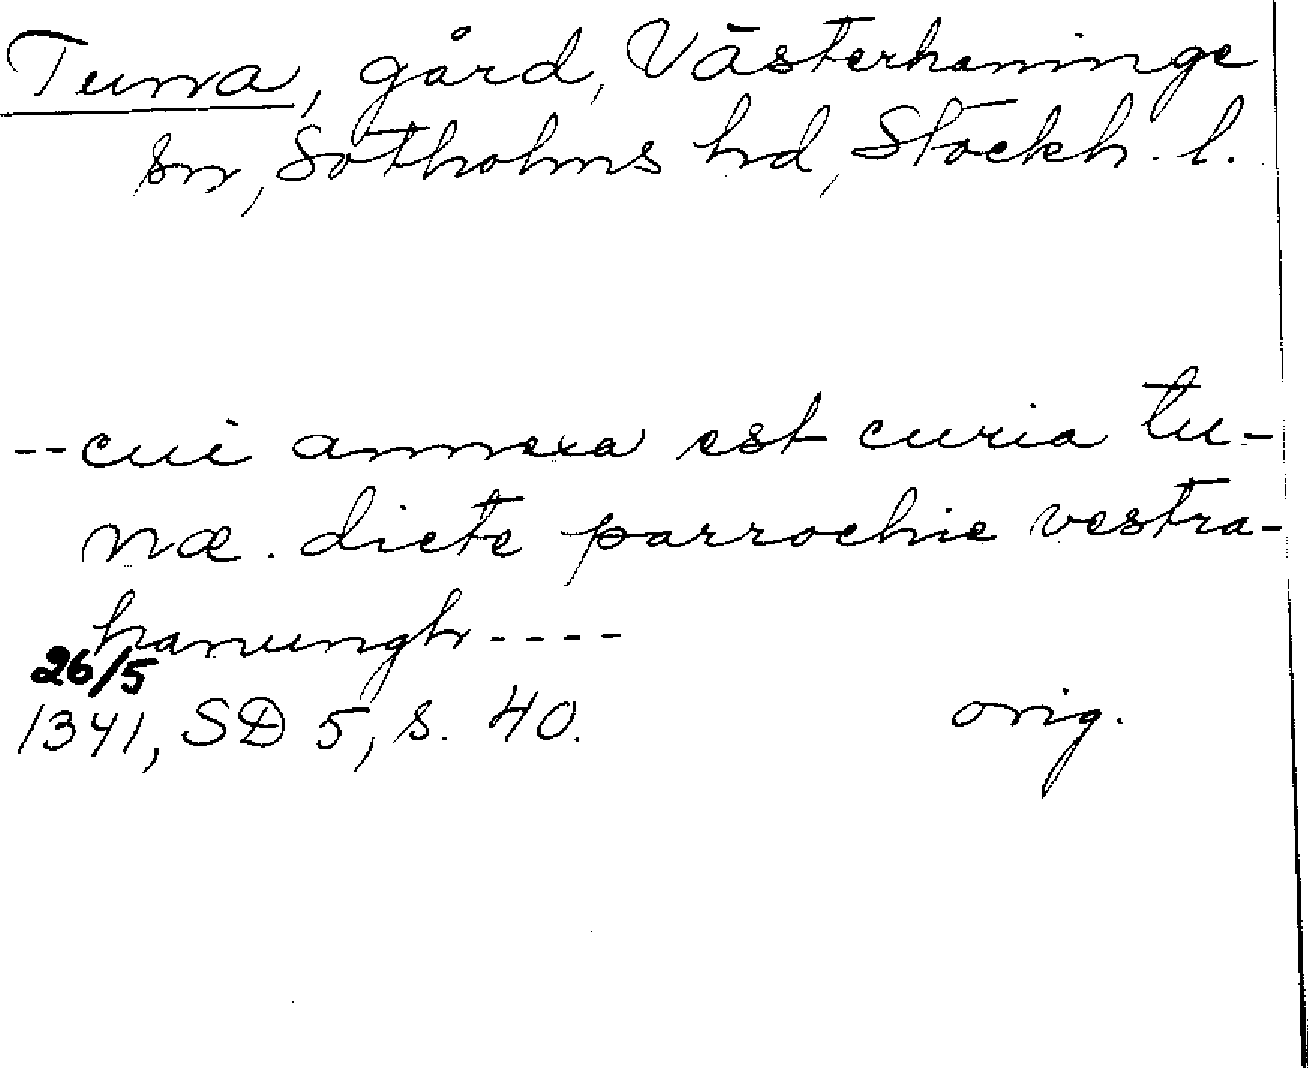 Tuna, gård, Västerhaninge
sn, Sotholms hd, Stockh. l.
--cui annexa est curia tu-
næ. dicte parrochie vestra-
hanungh----
26/5
1341, SD 5, s. 40. orig.